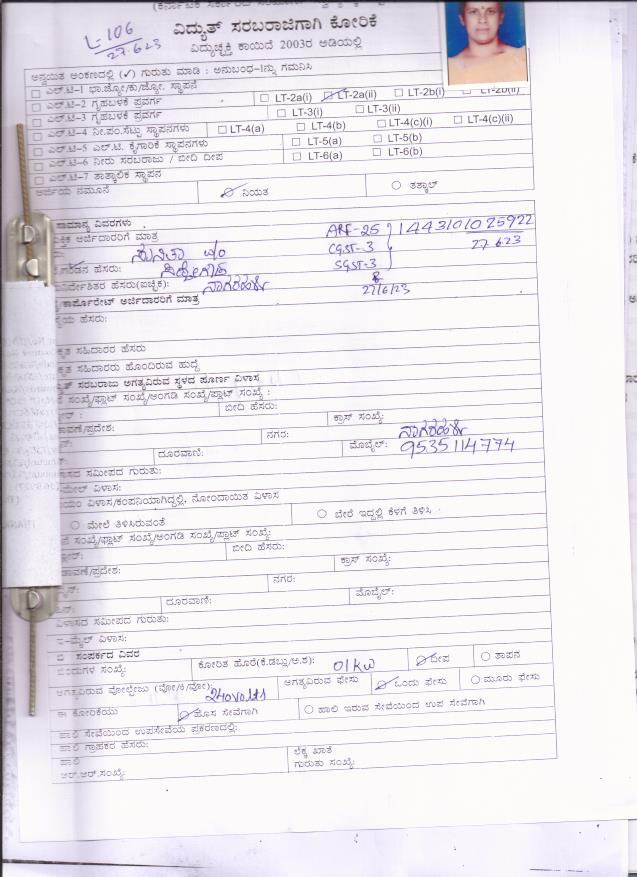 L-106
27.6.23
ವಿದ್ಯುತ್ ಸರಬರಾಜಿಗಾಗಿ ಕೋರಿಕೆ
ವಿದ್ಯುಚ್ಛಕ್ತಿ ಕಾಯಿದೆ 2003ರ ಅಡಿಯಲ್ಲಿ
ಅನ್ವಯಿತ ಅಂಕಣದಲ್ಲಿ (✓) ಗುರುತು ಮಾಡಿ : ಅನುಬಂಧ-1ನ್ನು ಗಮನಿಸಿ
ಎಲ್.ಟಿ-1 ಭಾ.ಜ್ಯೋ/ಕು/ಜ್ಯೋ. ಸ್ಥಾಪನೆ
ಎಲ್.ಟಿ-2 ಗೃಹಬಳಕೆ ಪ್ರವರ್ಗ LT-2a(i) LT-2a(ii) LT-2b(i) LT-2b(ii)
ಎಲ್.ಟಿ-3 ಗೃಹಬಳಕೆ ಪ್ರವರ್ಗ LT-3(i) LT-3(ii)
ಎಲ್.ಟಿ-4 ನೀ.ಪಂ.ಸೆಟ್ಟು ಸ್ಥಾಪನಗಳು LT-4(a) LT-4(b) LT-4(c)(i) LT-4(c)(ii)
ಎಲ್.ಟಿ-5 ಎಲ್.ಟಿ. ಕೈಗಾರಿಕೆ ಸ್ಥಾಪನಗಳು LT-5(a) LT-5(b)
ಎಲ್.ಟಿ-6 ನೀರು ಸರಬರಾಜು / ಬೀದಿ ದೀಪ LT-6(a) LT-6(b)
ಎಲ್.ಟಿ-7 ತಾತ್ಕಾಲಿಕ ಸ್ಥಾಪನ
ಅರ್ಜಿಯ ನಮೂನೆ ನಿಯತ ತತ್ಕಾಲ್
ಸಾಮಾನ್ಯ ವಿವರಗಳು
ಅರ್ಜಿದಾರರಿಗೆ ಮಾತ್ರ ARF-25 1443101025922
ಸುನಿತಾ CGST-3 27.6.23
ಹೆಸರು: SGST-3
ಹೆಸರು(ಐಚ್ಛಿಕ): 27/6/23
ಕಾರ್ಪೊರೇಟ್ ಅರ್ಜಿದಾರರಿಗೆ ಮಾತ್ರ
ಹೆಸರು:
ಸಹಿದಾರರ ಹೆಸರು
ಸಹಿದಾರರು ಹೊಂದಿರುವ ಹುದ್ದೆ
ಸರಬರಾಜು ಅಗತ್ಯವಿರುವ ಸ್ಥಳದ ಪೂರ್ಣ ವಿಳಾಸ
ಸಂಖ್ಯೆ/ಫ್ಲಾಟ್ ಸಂಖ್ಯೆ/ಅಂಗಡಿ ಸಂಖ್ಯೆ/ಪ್ಲಾಟ್ ಸಂಖ್ಯೆ :
ಬೀದಿ ಹೆಸರು: ಕ್ರಾಸ್ ಸಂಖ್ಯೆ:
ನಗರ:
ದೂರವಾಣಿ: ಮೊಬೈಲ್: 9535114774
ಸಮೀಪದ ಗುರುತು:
ವಿಳಾಸ:
ವಿಳಾಸ/ಕಂಪನಿಯಾಗಿದ್ದಲ್ಲಿ, ನೋಂದಾಯಿತ ವಿಳಾಸ
ಮೇಲೆ ತಿಳಿಸಿರುವಂತೆ ಬೇರೆ ಇದ್ದಲ್ಲಿ ಕೆಳಗೆ ತಿಳಿಸಿ
ಸಂಖ್ಯೆ/ಫ್ಲಾಟ್ ಸಂಖ್ಯೆ/ಅಂಗಡಿ ಸಂಖ್ಯೆ/ಪ್ಲಾಟ್ ಸಂಖ್ಯೆ:
ಬೀದಿ ಹೆಸರು: ಕ್ರಾಸ್ ಸಂಖ್ಯೆ:
ನಗರ:
ದೂರವಾಣಿ: ಮೊಬೈಲ್:
ಸಮೀಪದ ಗುರುತು:
ಇ-ಮೈಲ್ ವಿಳಾಸ:
ಬಿ ಸಂಪರ್ಕದ ವಿವರ
ಸಂಖ್ಯೆ: ಕೋರಿತ ಹೊರೆ(ಕೆ.ಡಬ್ಲು/ಅ.ಶ): 01KW ದೀಪ ತಾಪನ
ಅಗತ್ಯವಿರುವ ವೋಲ್ಟೇಜು (ವೋ/ಕಿ/ವೋ): 240volts ಅಗತ್ಯವಿರುವ ಫೇಸು ಒಂದು ಫೇಸು ಮೂರು ಫೇಸು
ಈ ಕೋರಿಕೆಯು ಹೊಸ ಸೇವೆಗಾಗಿ ಹಾಲಿ ಇರುವ ಸೇವೆಯಿಂದ ಉಪ ಸೇವೆಗಾಗಿ
ಹಾಲಿ ಸೇವೆಯಿಂದ ಉಪಸೇವೆಯ ಪ್ರಕರಣದಲ್ಲಿ:
ಹಾಲಿ ಗ್ರಾಹಕರ ಹೆಸರು:
ಹಾಲಿ ಲೆಕ್ಕ ಖಾತೆ
ಆರ್.ಆರ್.ಸಂಖ್ಯೆ: ಗುರುತು ಸಂಖ್ಯೆ: